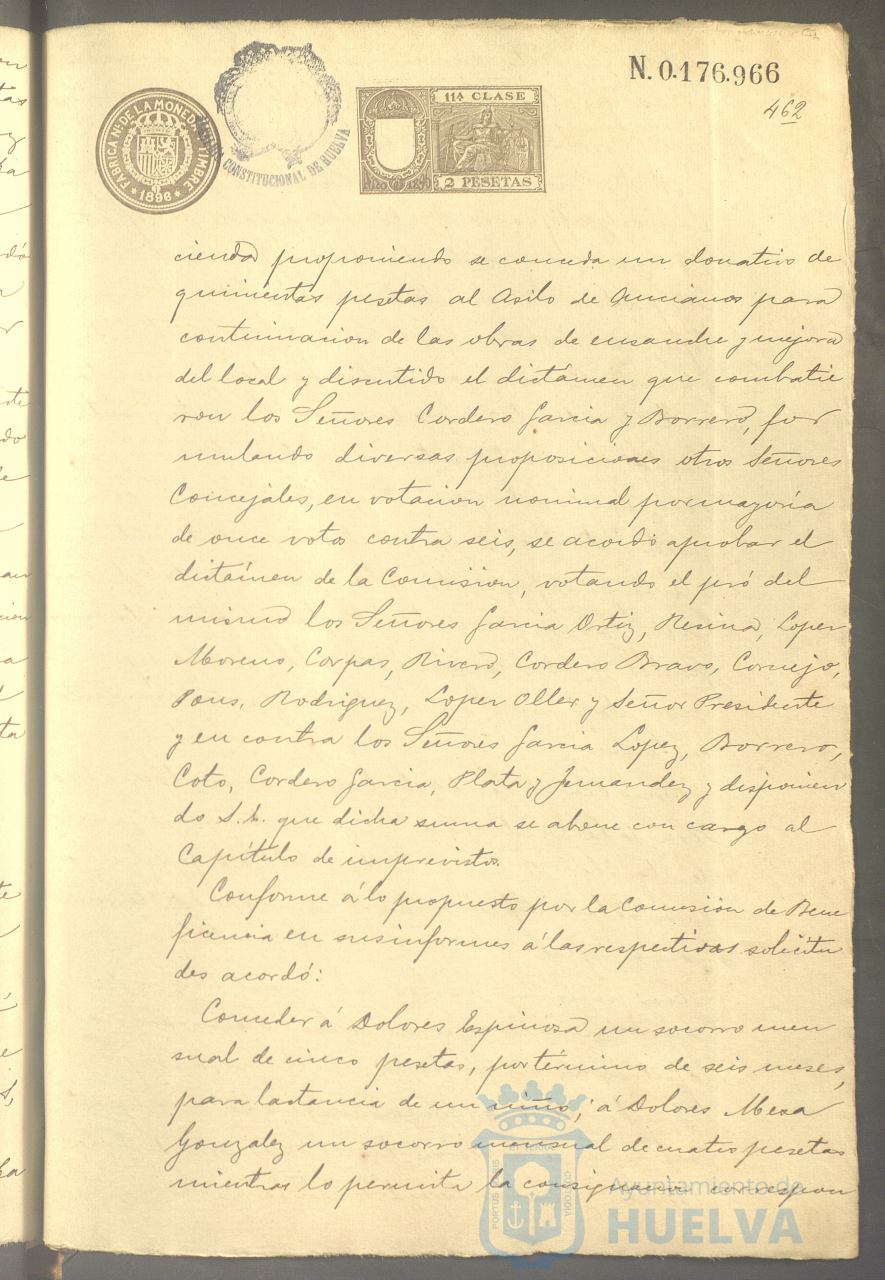 N. 0.176.966
462
FABRICA NAL DE LA MONEDA Y TIMBRE
1896
CONSTITUCIONAL DE HUELVA
11ª CLASE
2 PESETAS
cienda proponiendo se conceda un donativo de
quinientas pesetas al Asilo de Ancianos para
continuacion de las obras de ensanche y mejora
del local y discutido el dictámen que combatie
ron los Señores Cordero Garcia y Borrero, for
mulando diversas proposiciones otros Señores
Concejales, en votacion nominal por mayoría
de once votos contra seis, se acordó aprobar el
dictámen de la Comision, votando el pró del
mismo los Señores Garcia Ortiz, Resina, Lopez
Moreno, Corpas, Rivero, Cordero Bravo, Cornejo,
Pons, Rodriguez, Lopez Oller y Señor Presidente
y en contra los Señores Garcia Lopez, Borrero,
Coto, Cordero Garcia, Plata y Fernandez y disponien
do S. E. que dicha suma se abone con cargo al
Capítulo de imprevistos.
Conforme á lo propuesto por la Comision de Bene
ficencia en sus informes á las respectivas solicitu
des acordó:
Conceder á Dolores Espinosa un socorro men
sual de cinco pesetas, por término de seis meses,
para lactancia de un niño; á Dolores Mesa
Gonzalez un socorro mensual de cuatro pesetas
mientras lo permita la consignacion correspon
Ayuntamiento de
HUELVA